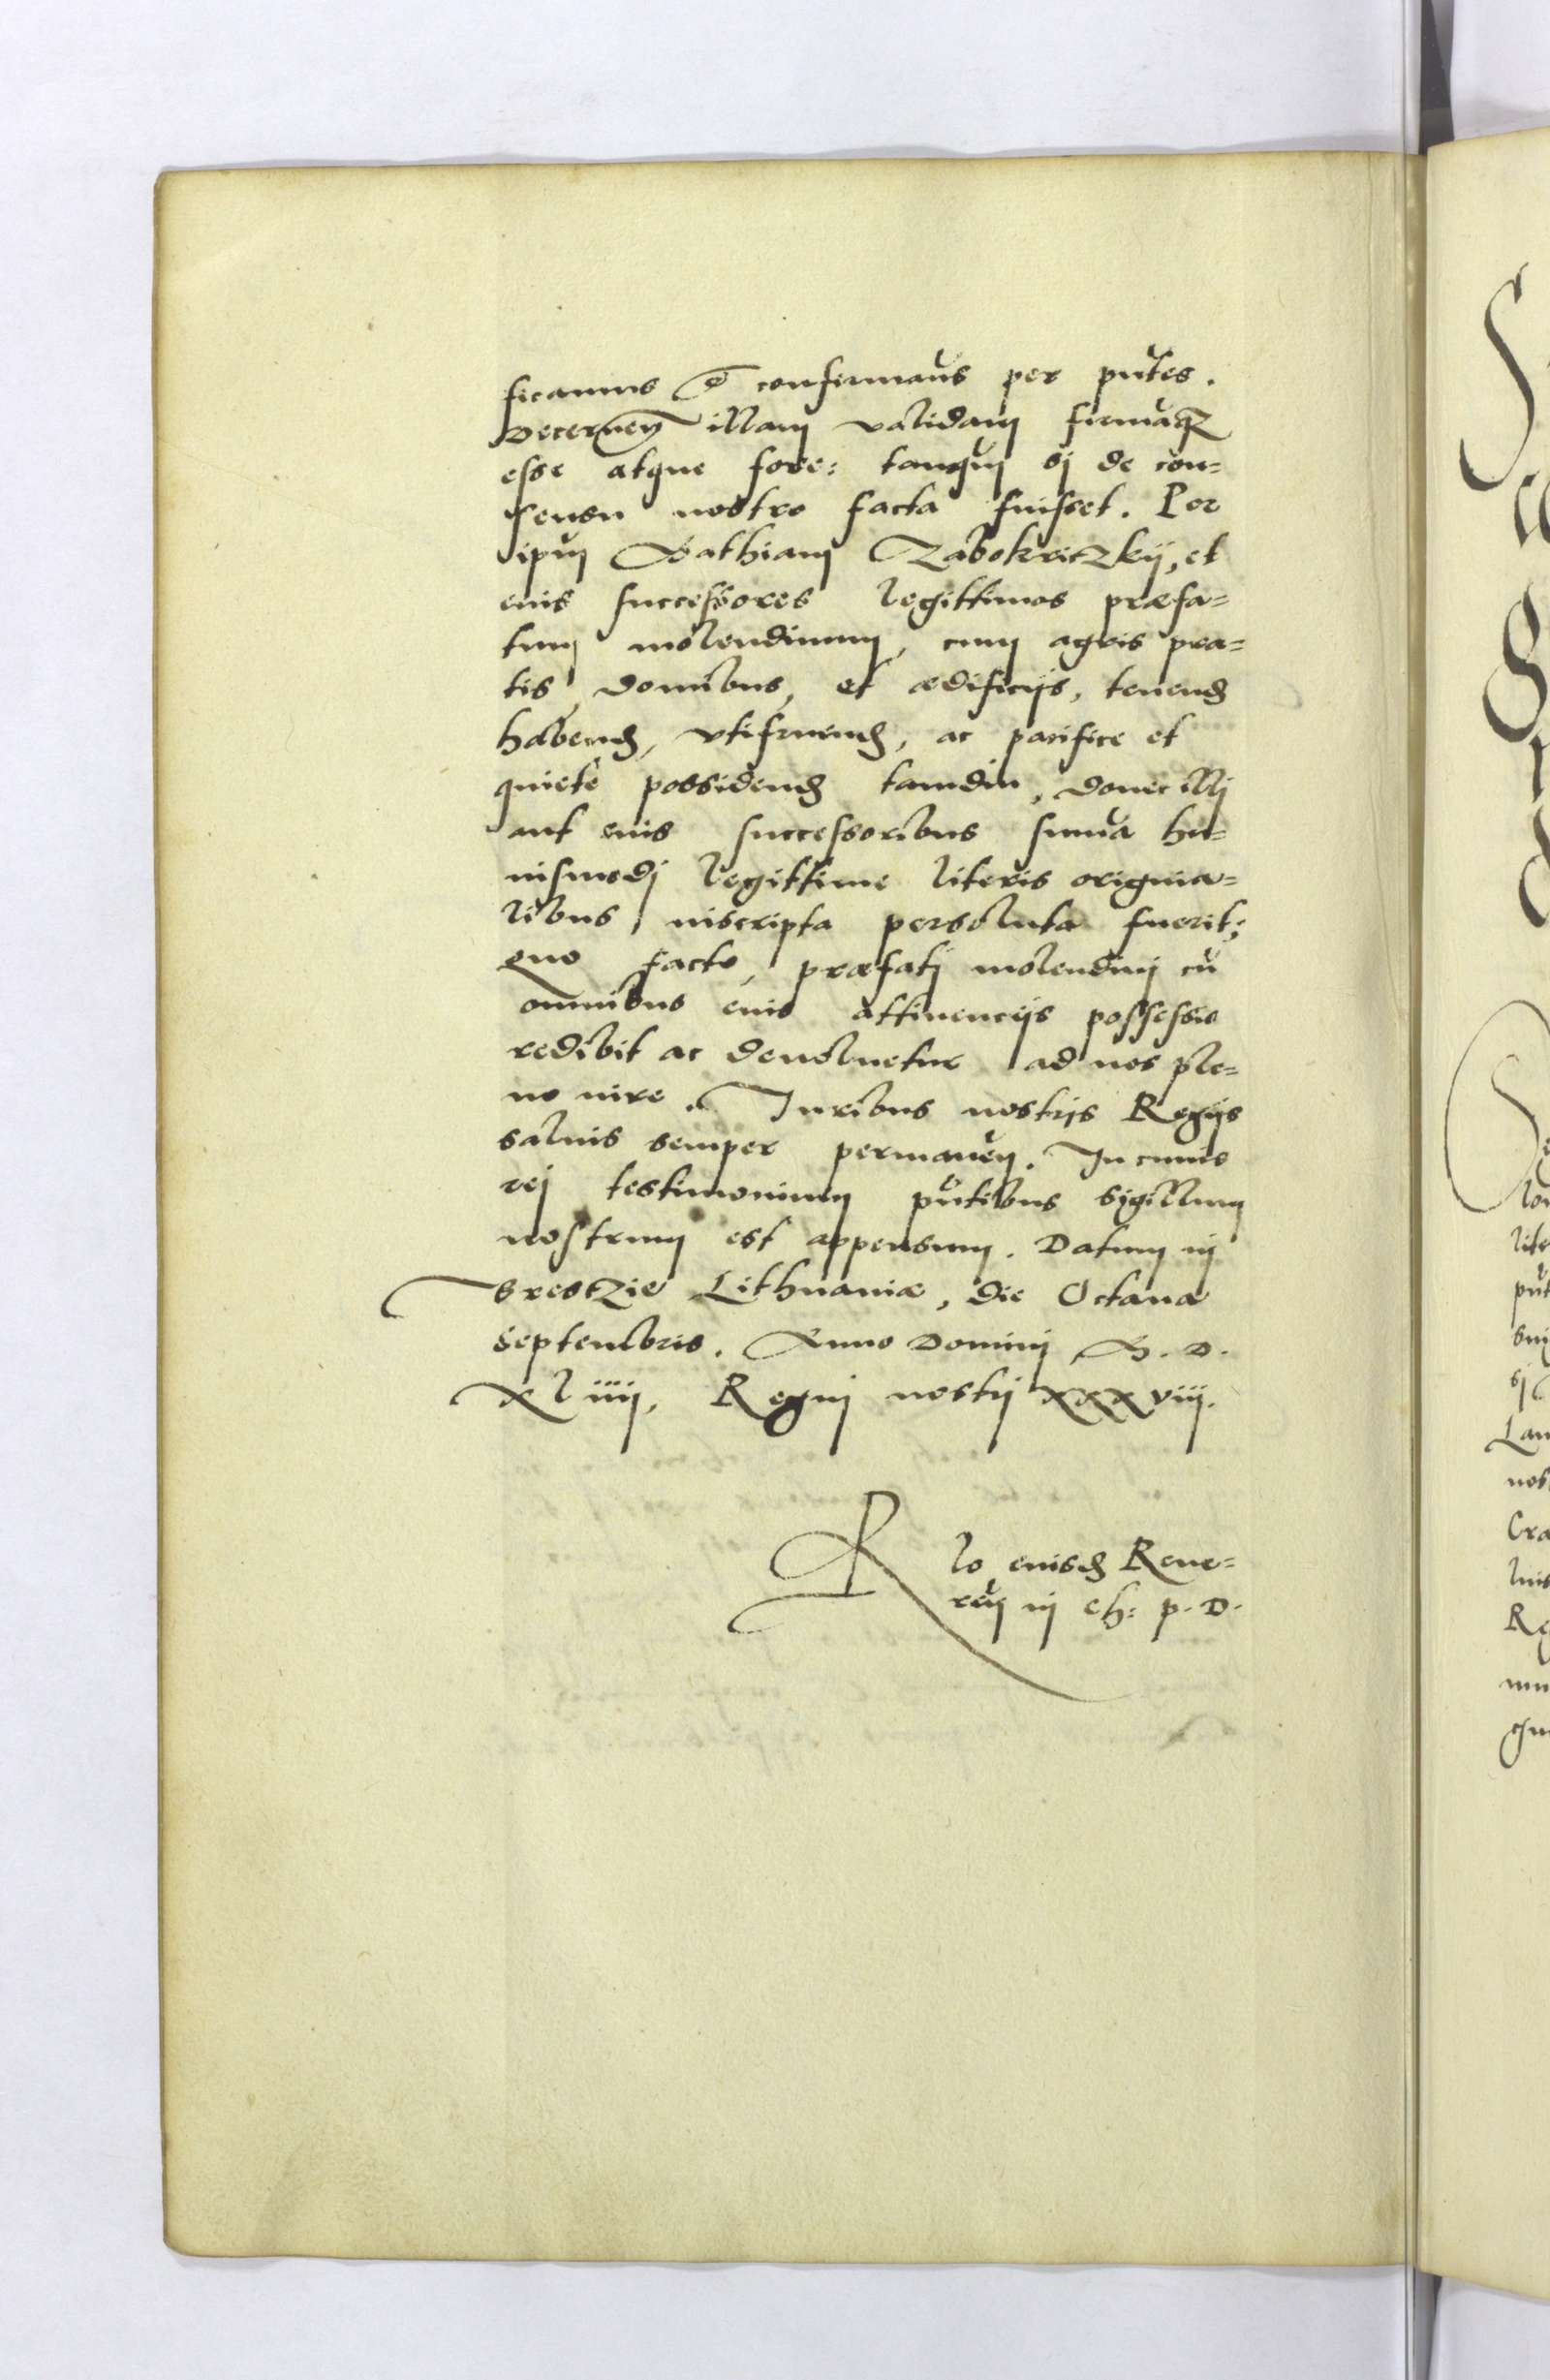 ficamus et confirmaus per pntes.
Decernen illam validam firmaq
esse atque fore: tanqm si de con=
sensu nostro facta fuisset. Per
ipm Mathiam Zabokriczkij, et
eius successores legittimos præfa=
tum molendinum, cum agris pra=
tis, domibus, et ædificijs, tenend
habend, vtifruend, ac pacifice et
quiete possidend tamdiu, donec illj
aut eius successoribus summa hu=
iusmodj legittime literis origina=
libus inscripta persoluta fuerit;
quo facto, præfatj molendinj cu
omnibus eius attinencijs possessio
redibit ac deuoluetur ad nos ple=
no iure. Juribus nostris Regijs
saluis semper permanen. In cuius
rej testimonium pntibus sigillum
nostrum est appensum. Datum in
Brestzie Lithuaniæ, die Octaua
Septembris. Anno Domini M. D.
xliiij, Regnj nostrj xxxviij.
Rlo eiusd Reue=
ren in ch: p. D.
lite
Lan
nos
Cra
luis